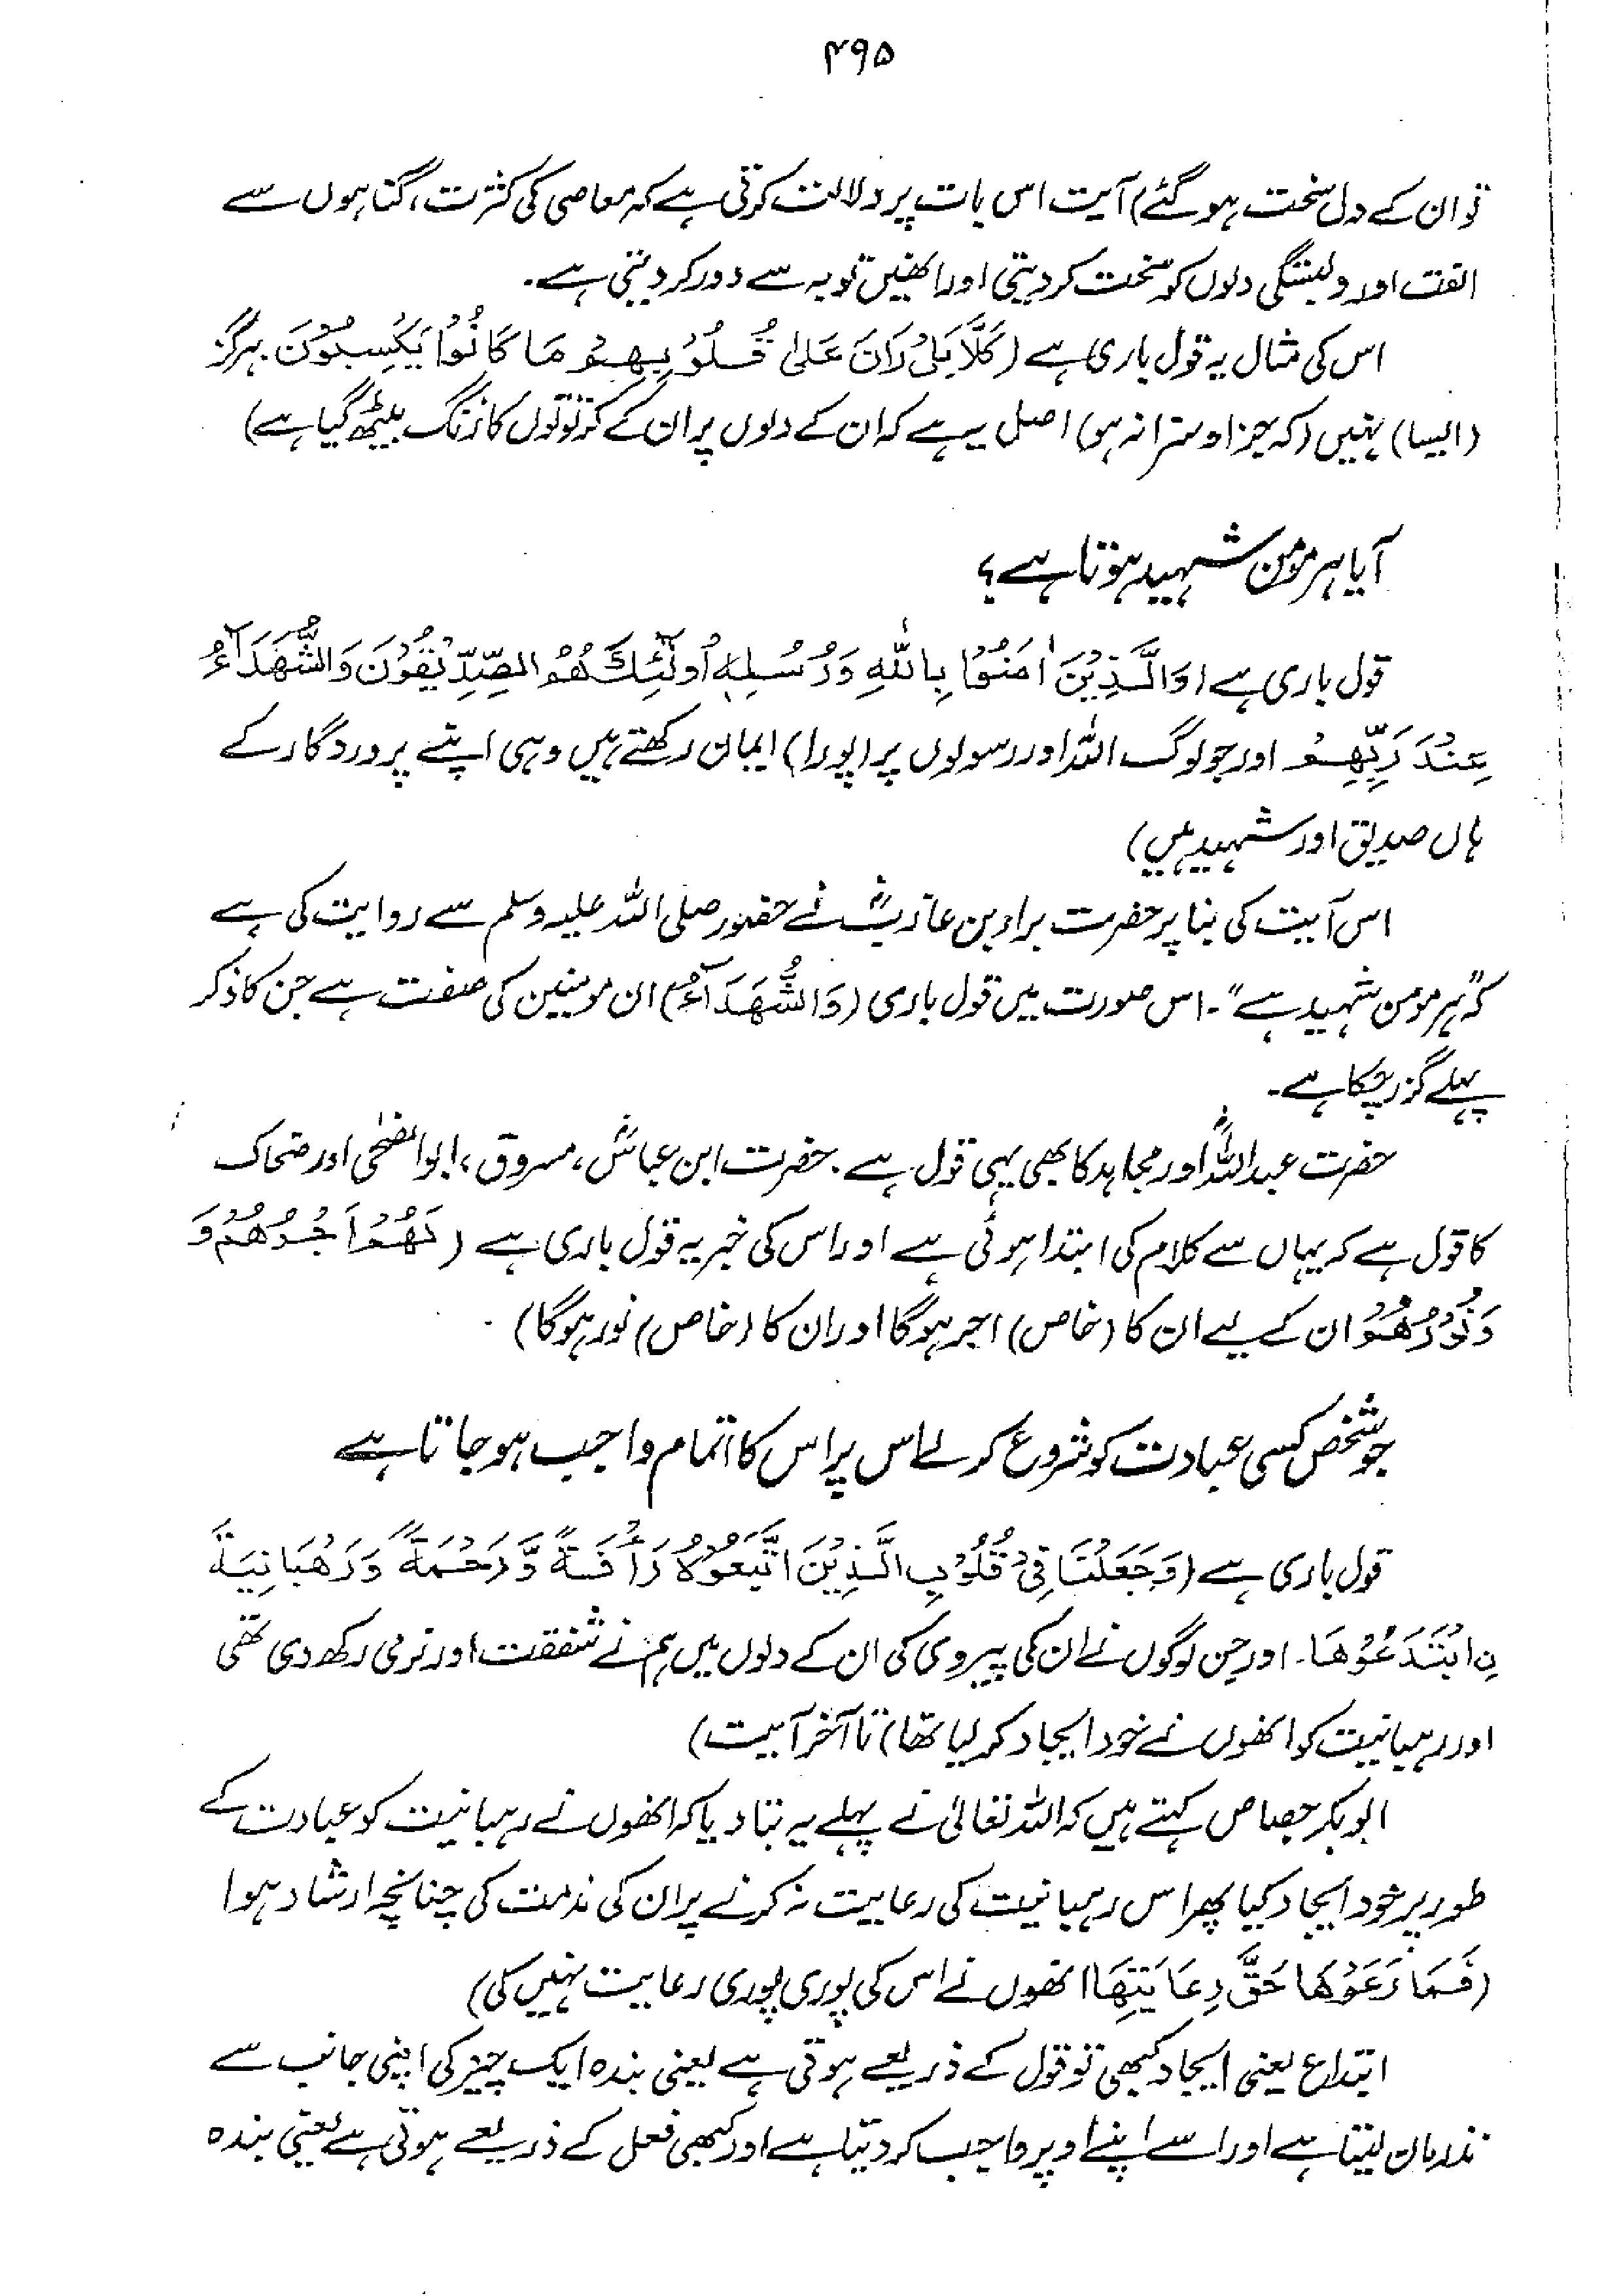 ۴۹۵
تو ان کے دل سخت ہو گئے) آیت اس بات پر دلالت کرتی ہے کہ معاصی کی کثرت، گناہوں سے
الفت اور وبستگی دلوں کو سخت کر دیتی اور انھیں توبہ سے دور کر دیتی ہے۔
اس کی مثال یہ قول باری ہے (كَلَّا بَلْ رَانَ عَلىٰ قُلُوْبِهِمْ مَا كَانُوْا يَكْسِبُوْنَ۔ ہرگز
(ایسا) نہیں (کہ جزا و سزا نہ ہو) اصل یہ ہے کہ ان کے دلوں پر ان کے کرتوتوں کا زنگ بیٹھ گیا ہے)
آیا ہر مومن شہید ہوتا ہے؟
قول باری ہے (وَالَّذِيْنَ اٰمَنُوْا بِاللّٰهِ وَرُسُلِهٖ اُولٰٓئِكَ هُمُ الصِّدِّيْقُوْنَ وَالشُّهَدَآءُ
عِنْدَ رَبِّهِمْ اور جو لوگ اللہ اور رسولوں پر (پورا) ایمان رکھتے ہیں وہی اپنے پروردگار کے
ہاں صدیق اور شہید ہیں)
اس آیت کی بنا پر حضرت براء بن عازبؓ نے حضور صلی اللہ علیہ وسلم سے روایت کی ہے
کہ "ہر مومن شہید ہے"۔ اس صورت میں قول باری (وَالشُّهَدَآءُ) ان مومنین کی صفت ہے جن کا ذکر
پہلے گزر چکا ہے۔
حضرت عبداللہؓ اور مجاہد کا بھی یہی قول ہے۔ حضرت ابن عباسؓ، مسروق، ابوالضحٰی اور ضحاک
کا قول ہے کہ یہاں سے کلام کی ابتدا ہوئی ہے اور اس کی خبر یہ قول باری ہے (لَهُمْ اَجْرُهُمْ وَ
وَنُوْرُهُمْ ان کے لیے ان کا (خاص) اجر ہوگا اور ان کا (خاص) نور ہوگا)
جو شخص کسی عبادت کو شروع کر لے اس پر اس کا اتمام واجب ہو جاتا ہے
قول باری ہے (وَجَعَلْنَا فِيْ قُلُوْبِ الَّذِيْنَ اتَّبَعُوْهُ رَأْفَةً وَّرَحْمَةً وَرَهْبَانِيَةَ
نِ ابْتَدَعُوْهَا۔ اور جن لوگوں نے ان کی پیروی کی ان کے دلوں میں ہم نے شفقت اور نرمی رکھ دی تھی
اور رہبانیت کو انھوں نے خود ایجاد کر لیا تھا) تا آخر آیت)
ابوبکر جصاص کہتے ہیں کہ اللہ تعالیٰ نے پہلے یہ بتا دیا کہ انھوں نے رہبانیت کو عبادت کے
طور پر خود ایجاد کیا پھر اس رہبانیت کی رعایت نہ کرنے پر ان کی مذمت کی چنانچہ ارشاد ہوا
(فَمَا رَعَوْهَا حَقَّ رِعَايَتِهَا انھوں نے اس کی پوری پوری رعایت نہیں کی)
ابتداع یعنی ایجاد کبھی تو قول کے ذریعے ہوتی ہے یعنی بندہ ایک چیز کی اپنی جانب سے
نذر مان لیتا ہے اور اسے اپنے اوپر واجب کر دیتا ہے اور کبھی فعل کے ذریعے ہوتی ہے یعنی بندہ